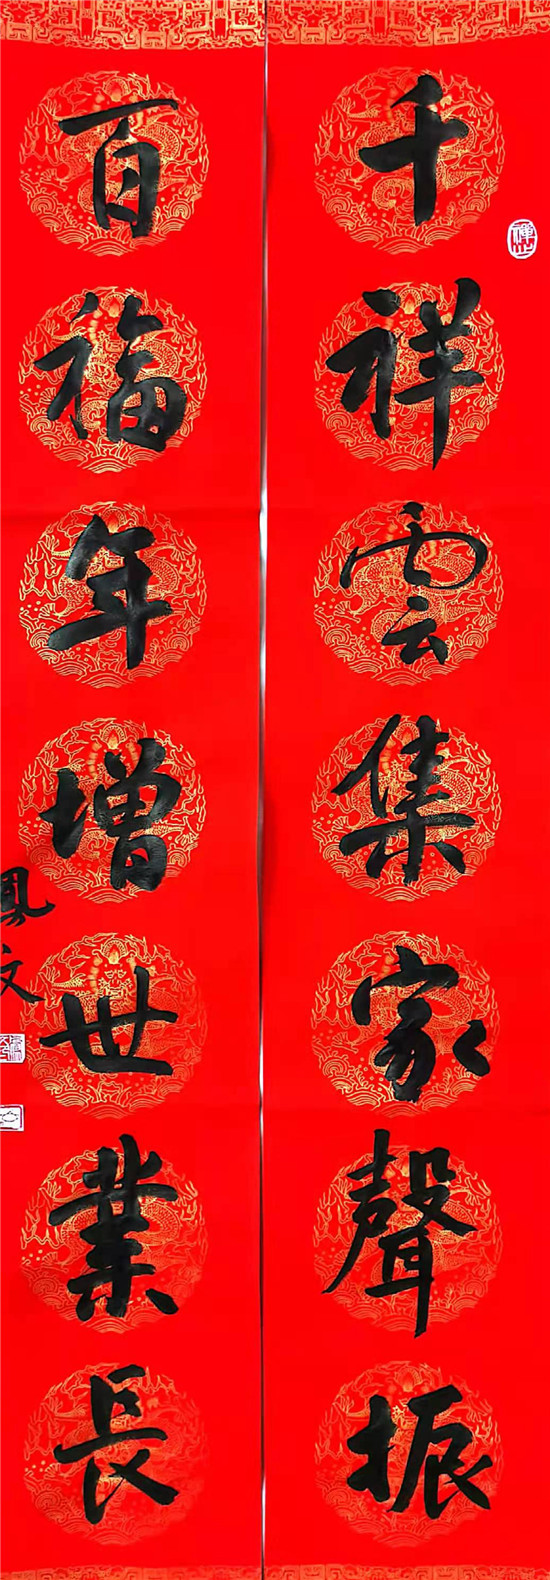 千祥雲集家聲振
百福年增世業長
鳳文